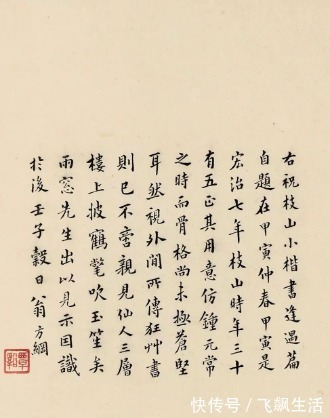 右祝枝山小楷書逢遇篇
自題在甲寅仲春甲寅是
宏治七年枝山時年三十
有五正其用意仿鍾元常
之時而骨格尚未極蒼堅
耳然視外間所傳狂艸書
則已不啻親見仙人三層
樓上披鶴氅吹玉笙矣
雨窓先生出以見示因識
於後壬子穀日翁方綱
覃谿
快传号/飞飘生活